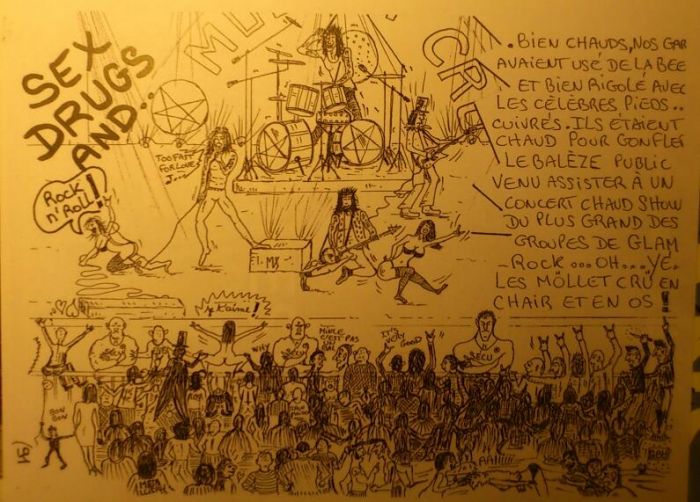 SEX
DRUGS
AND..
MÖ
CRÜ
ROCK
n' ROLL!
TOO FAST
FOR LOVE
. BIEN CHAUDS, NOS GAR
AVAIENT USÉ DE LA BEE
ET BIEN RIGOLÉ AVEC
LES CÉLÈBRES PIEDS..
CUIVRÉS. ILS ÉTAIENT
CHAUD POUR GONFLEI
LE BALÈZE PUBLIC
VENU ASSISTER À UN
CONCERT CHAUD SHOW
DU PLUS GRAND DES
GROUPES DE GLAM
ROCK ... OH ... YE,
LES MÖLLET CRÜ EN
CHAIR ET EN OS !
Je t'aime!
SECU
SECU
IT'S
VERY
GOOD
BON
BON
AAHIIIII